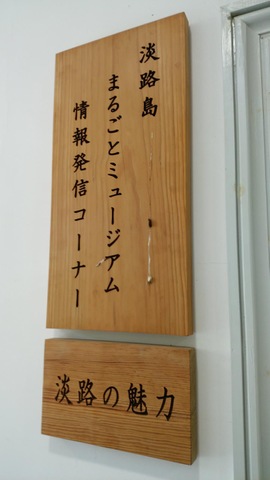 淡路島
まるごとミュージアム
情報発信コーナー
淡路の魅力